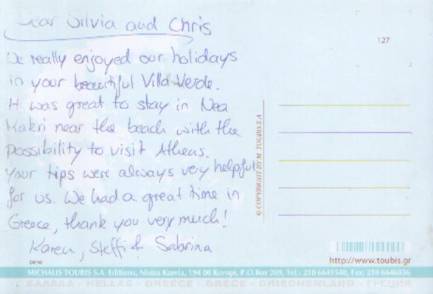 Dear Silvia and Chris
We really enjoyed our holidays
in your beautiful Villa Verde.
It was great to stay in Nea
Makri near the beach with the
possibility to visit Athens.
Your tips were always very helpful
for us. We had a great time in
Greece, thank you very much!
Karen, Steffi & Sabrina
127
© COPYRIGHT BY M. TOUBIS S.A.
http://www.toubis.gr
MICHALIS TOUBIS S.A. Editions, Nisiza Karela, 194 00 Koropi, P.O Box 209, Tel.: 210 6641540, Fax: 210 6646856
HELLAS - GREECE - GRECE - GRIECHENLAND - ГРЕЦИЯ